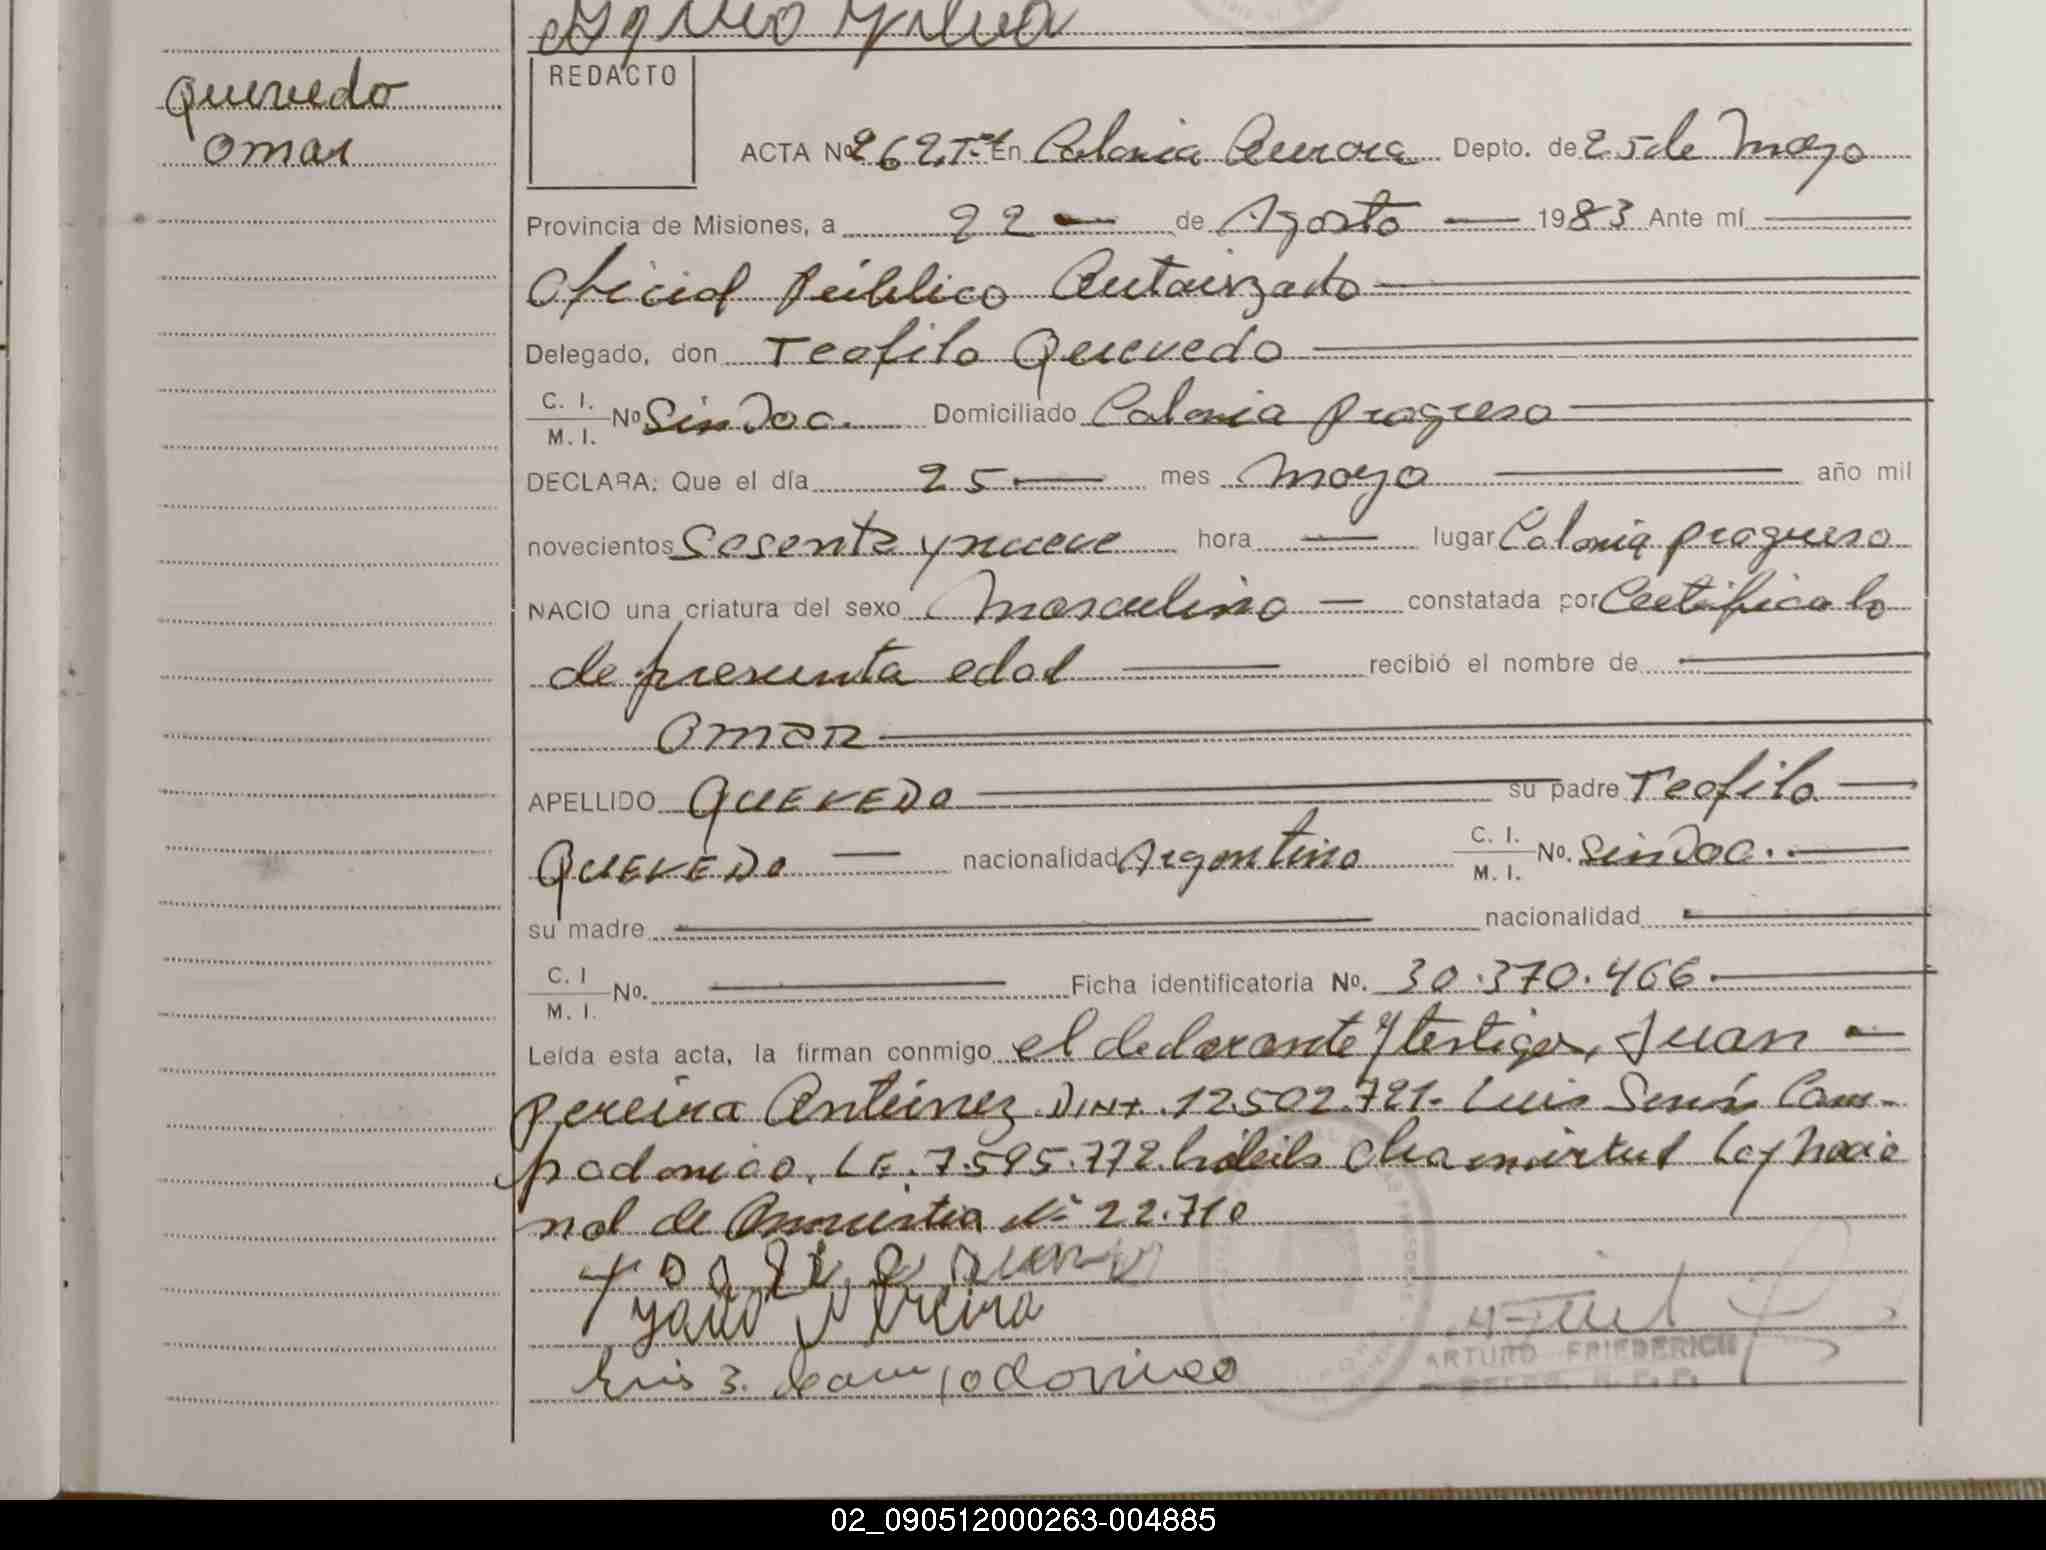 Quevedo
Omar
REDACTO
ACTA Nº 262. En Colonia Aurora Depto. de 25 de Mayo
Provincia de Misiones, a 22 — de Agosto — 1983 Ante mí
Oficial Público Autorizado
Delegado, don Teofilo Quevedo
C. I.
M. I. Nº Sin Doc. Domiciliado Colonia Progreso
DECLARA: Que el día 25 — mes Mayo — año mil
novecientos Sesenta y nueve hora — lugar Colonia progreso
NACIO una criatura del sexo Masculino — constatada por Certificado
de presunta edad — recibió el nombre de
OMAR
APELLIDO QUEVEDO — su padre Teofilo —
QUEVEDO — nacionalidad Argentino C. I.
M. I. No. Sin Doc. —
su madre — nacionalidad —
C. I
M. I. No. — Ficha identificatoria No. 30.370.466.—
Leída esta acta, la firman conmigo el declarante y testigos, Juan —
Pereira Antunez DNI. 12.502.721. Luis Cam-
podonico. LE. 7.595.772. en virtud Ley Nacio
nal de Amnistia Nº 22.710
Pereira
Luis S. Campodonico
ARTURO FRIEDERICH
02_090512000263-004885